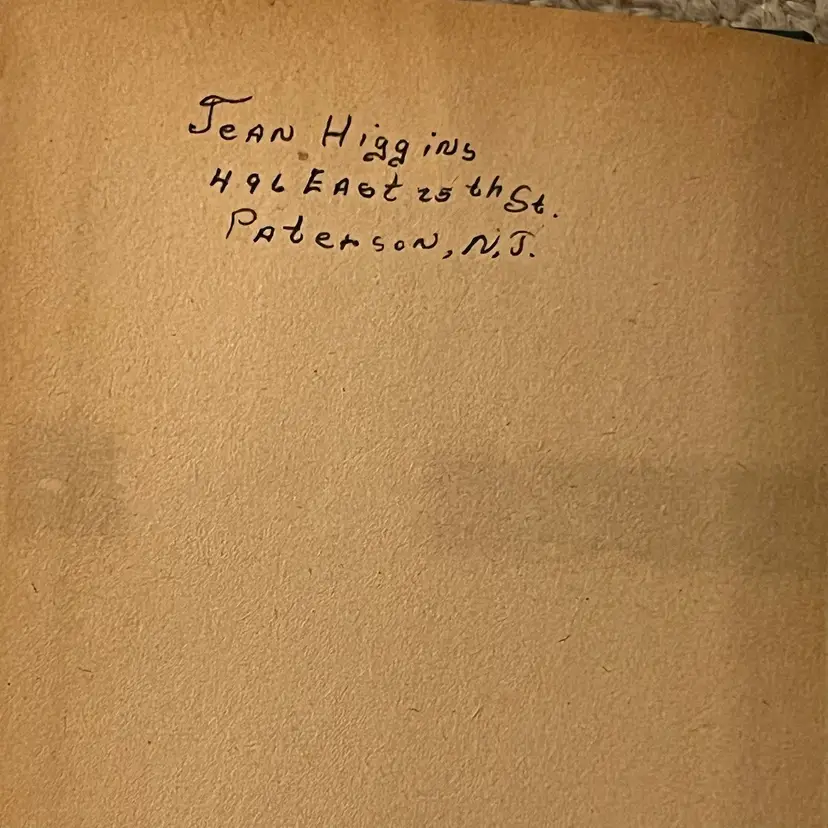 Jean Higgins
496 East 25th St.
Paterson, N.J.